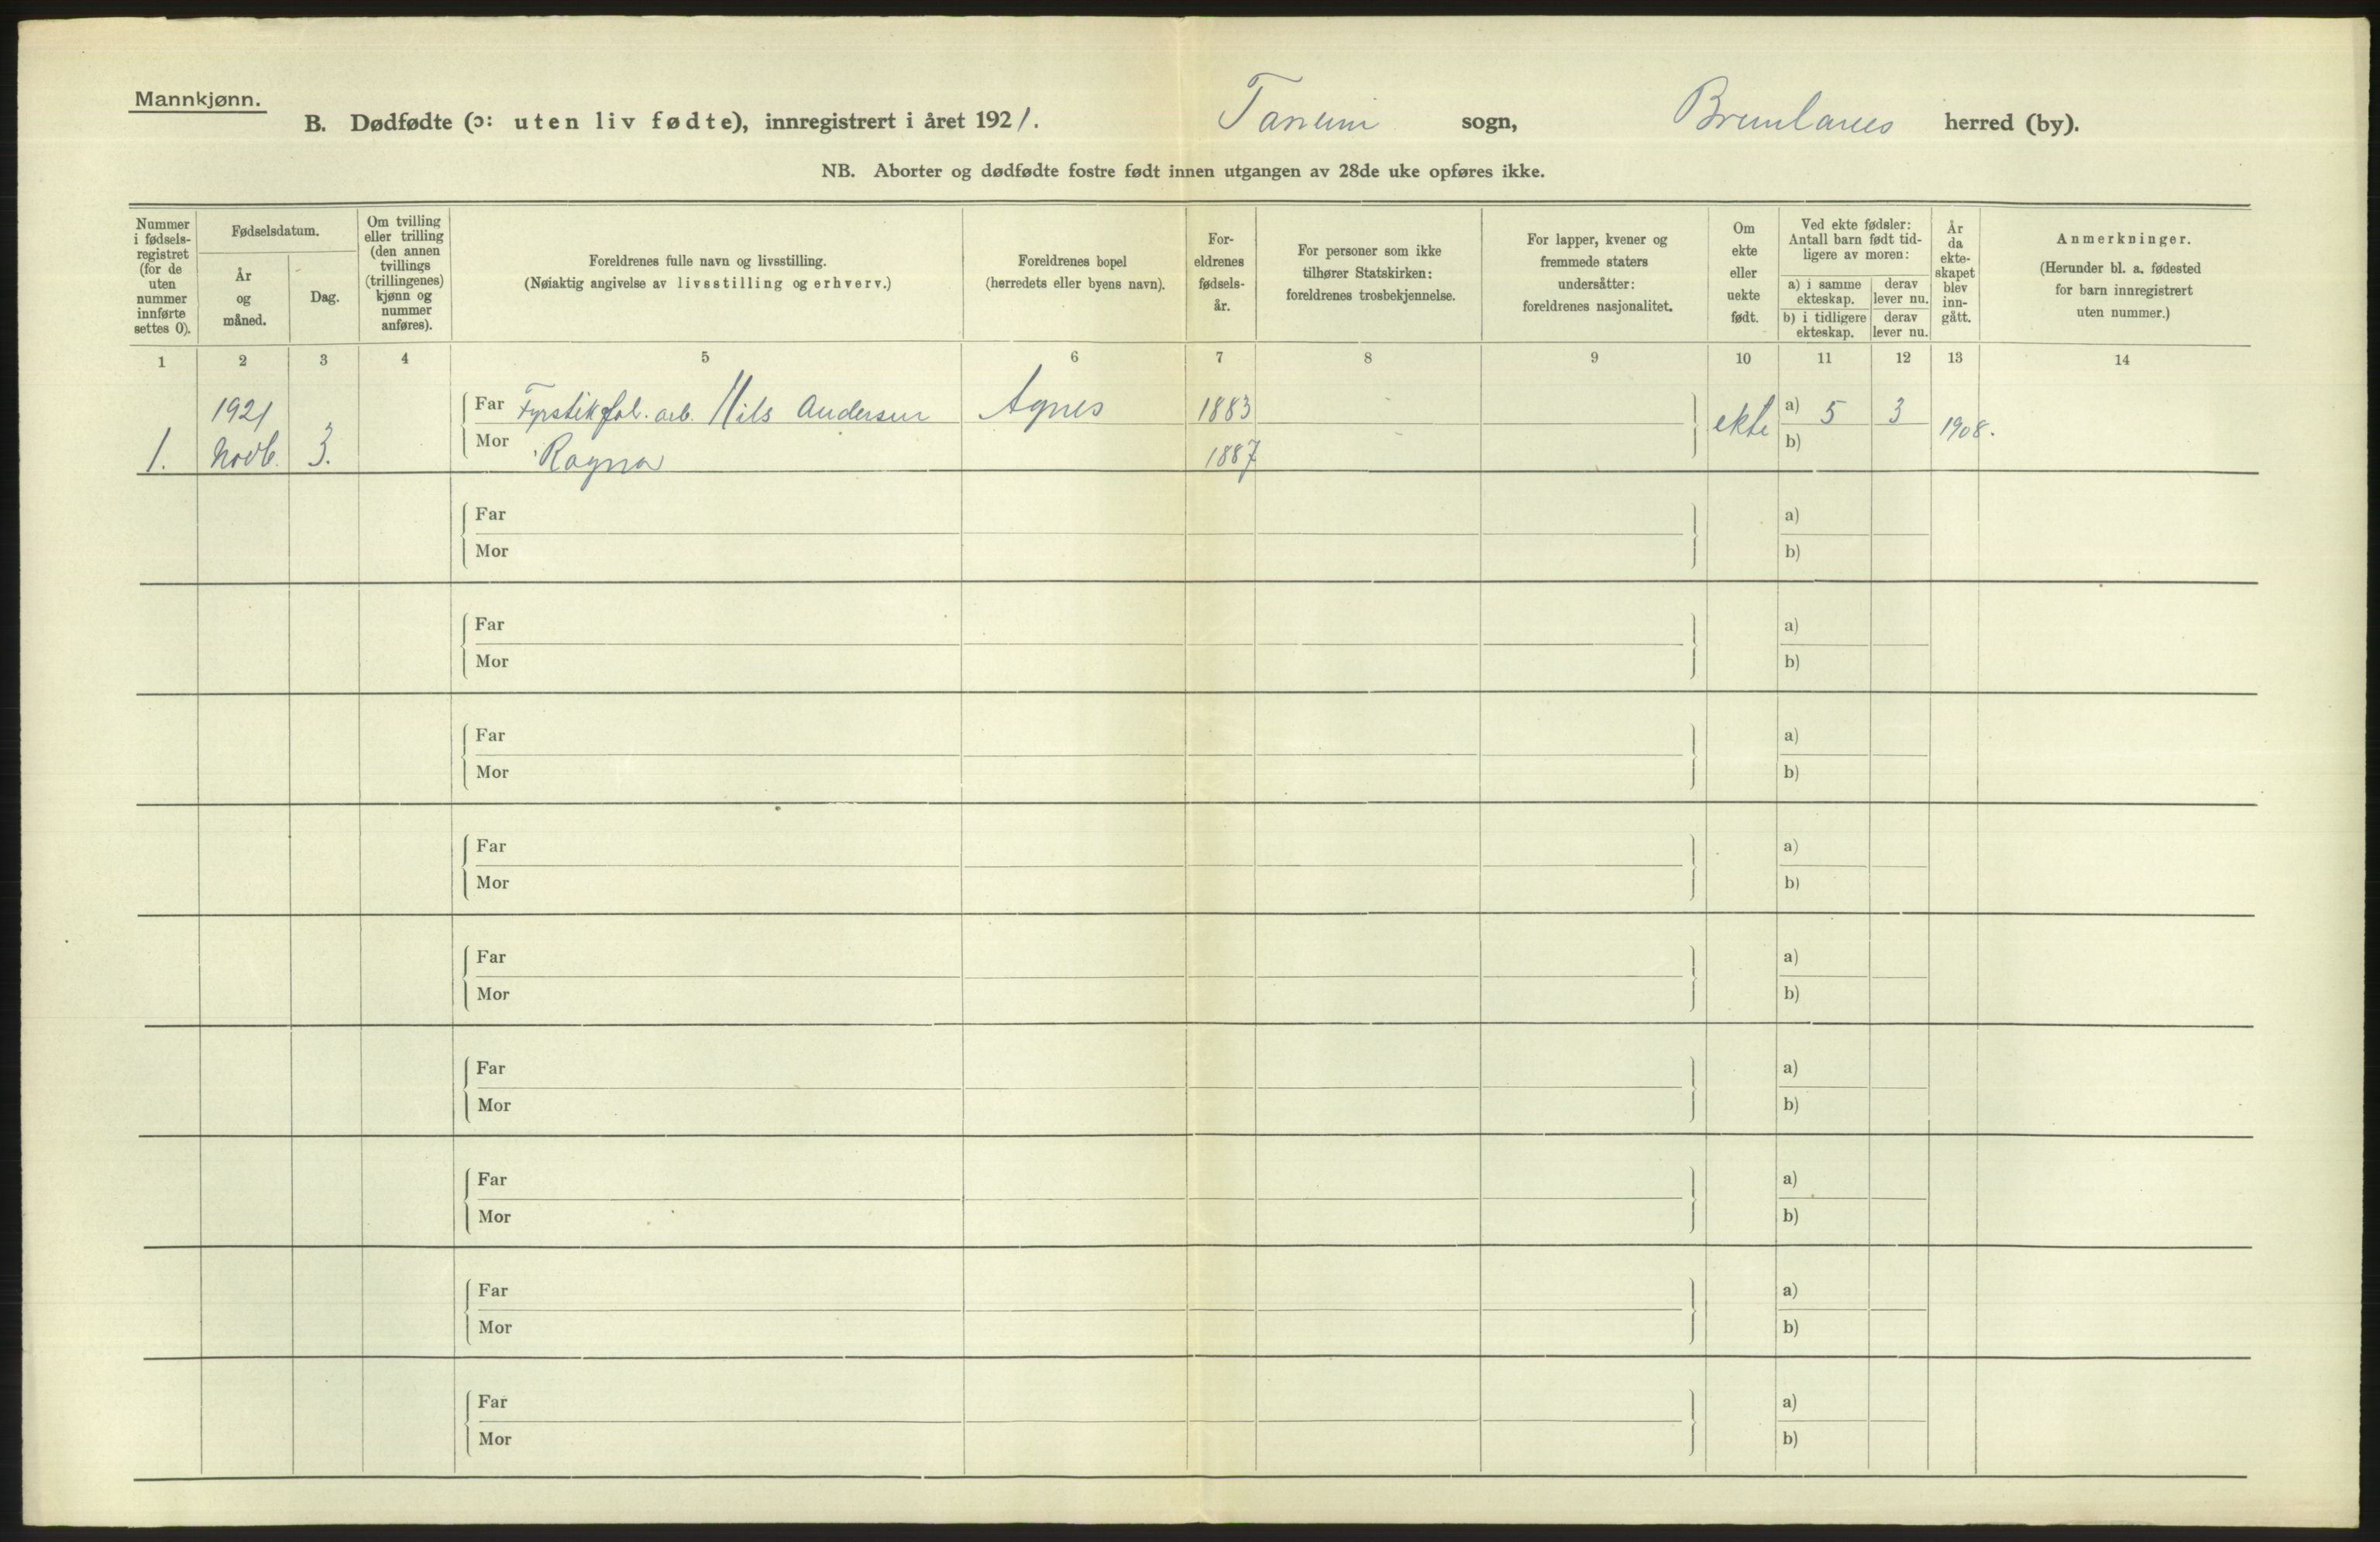 Mannkjønn.
B. Dødfødte (ɔ: uten liv fødte), innregistrert i året 1921. Tanum sogn, Brunlanes herred (by).
NB. Aborter og dødfødte fostre født innen utgangen av 28de uke opføres ikke.
Nummer i fødsels-registret (for de uten nummer innførte settes 0).
Fødselsdatum.
År og måned.
Dag.
Om tvilling eller trilling (den annen tvillings (trillingenes) kjønn og nummer anføres).
Foreldrenes fulle navn og livsstilling.
(Nøiaktig angivelse av livsstilling og erhverv.)
Foreldrenes bopel
(herredets eller byens navn).
For-eldrenes fødsels-år.
For personer som ikke tilhører Statskirken: foreldrenes trosbekjennelse.
For lapper, kvener og fremmede staters undersåtter: foreldrenes nasjonalitet.
Om ekte eller uekte født.
Ved ekte fødsler: Antall barn født tid-ligere av moren:
a) i samme ekteskap.
derav lever nu.
b) i tidligere ekteskap.
derav lever nu.
År da ekte-skapet blev inn-gått.
Anmerkninger.
(Herunder bl. a. fødested for barn innregistrert uten nummer.)
1 2 3 4 5 6 7 8 9 10 11 12 13 14
1921 Far Fyrstikfab. arb. Nils Andersen Agnes 1883 ekte a) 5 3 1908.
1. Novb. 3. Mor Ragna 1887 b)
Far a)
Mor b)
Far a)
Mor b)
Far a)
Mor b)
Far a)
Mor b)
Far a)
Mor b)
Far a)
Mor b)
Far a)
Mor b)
Far a)
Mor b)
Far a)
Mor b)